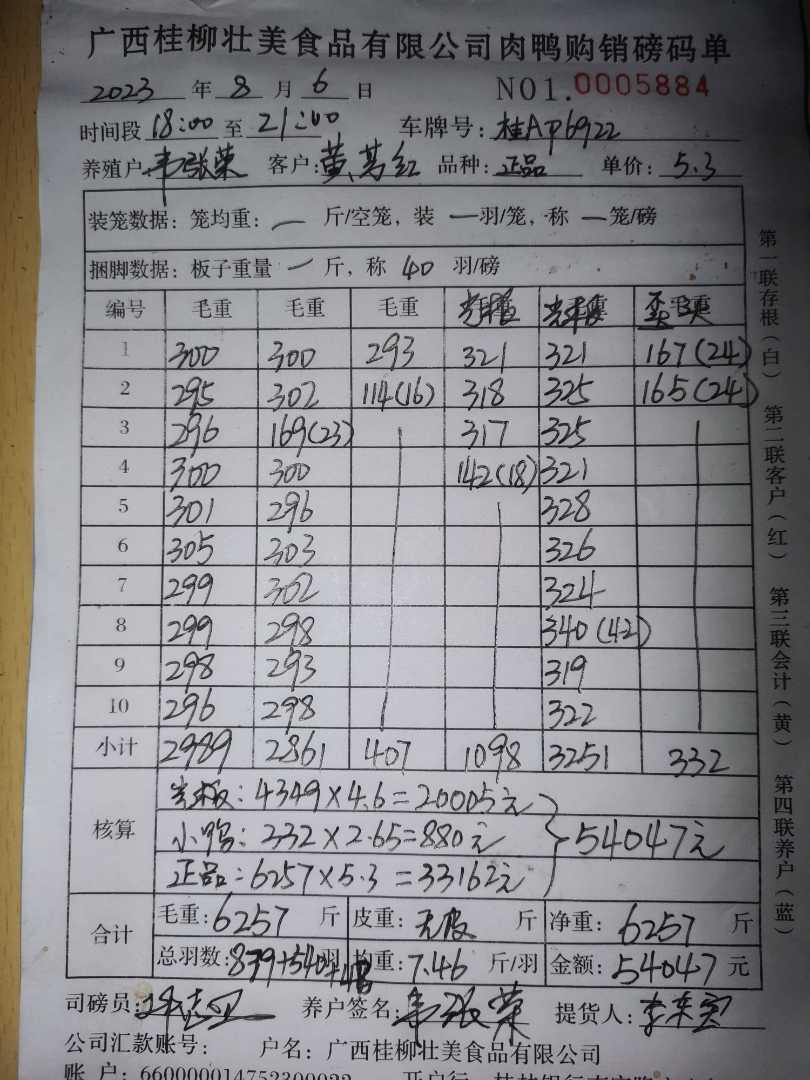 广西桂柳壮美食品有限公司肉鸭购销磅码单
2023 年 8 月 6 日 NO1.0005884
时间段 18:00 至 21:00 车牌号: 桂AP6922
养殖户 韦张荣 客户: 黄 红 品种: 正品 单价: 5.3
装笼数据: 笼均重: 一 斤/空笼, 装 一 羽/笼, 称 一 笼/磅
捆脚数据: 板子重量 一 斤, 称 40 羽/磅
编号 毛重 毛重 毛重 毛重 毛重 毛重
1 300 300 293 321 321 167(24)
2 295 302 114(16) 318 325 165(24)
3 296 169(23) 317 325
4 300 300 142(18) 321
5 301 296 328
6 305 303 326
7 299 302 324
8 299 298 340(42)
9 298 293 319
10 296 298 322
小计 2989 2861 407 1098 3251 332
核算
光板: 4349×4.6=20005元
小鸭: 332×2.65=880元
正品: 6257×5.3=33162元
54047元
合计
毛重: 6257 斤 皮重: 无皮 斤 净重: 6257 斤
总羽数: 839+540+48 羽 均重: 7.46 斤/羽 金额: 54047 元
司磅员: 养户签名: 韦张荣 提货人:
公司汇款账号: 户名: 广西桂柳壮美食品有限公司
账 户: 660000014752300022 开户行:
第一联存根(白) 第二联客户(红) 第三联会计(黄) 第四联养户(蓝)